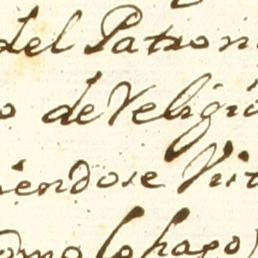 del Patron
o de Veligi
iendose Vit
omo lo hago